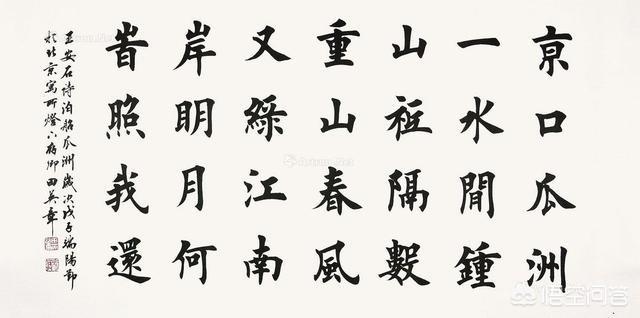 亰口瓜洲
一水間鍾
山祗隔數
重山春風
又綠江南
岸明月何
旹照我還
王安石詩泊船瓜洲歲次戊子端陽節
於北京寓所燈下存卿田英章
悟空问答